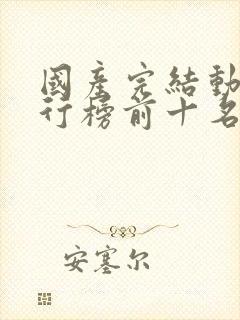 國產完結動
行榜前十名
安塞尔